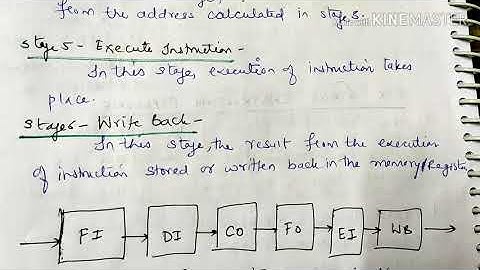 from the address calculated in stage 3.
Made with
KINEMASTER
Stage 5 - Execute Instruction -
In this stage, execution of instruction takes
place.
Stage 6 - Write Back -
In this stage, the result from the execution
of instruction stored or written back in the memory/Register
FI DI CO FO EI WB